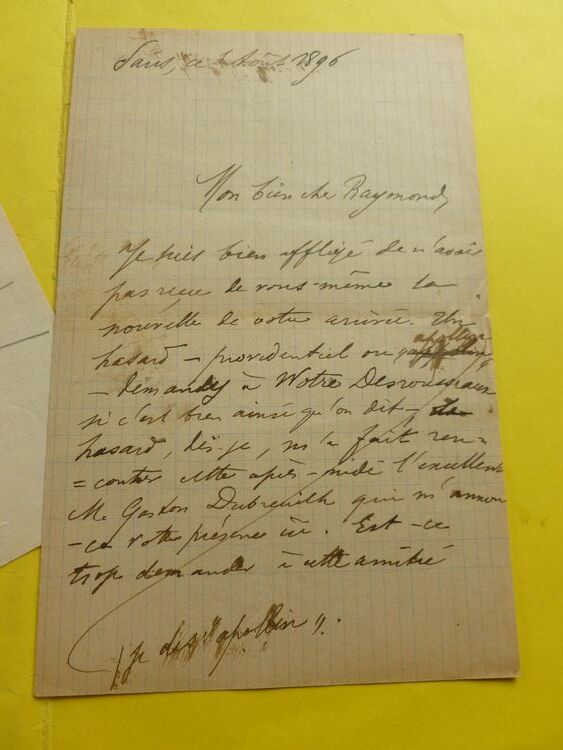 Paris, ce 2 Août 1896
Mon bien cher Raymond,
Je suis bien affligé de n'avoir
pas reçu de vous-même la
nouvelle de votre arrivée. Un
hasard – providentiel ou apollin
– demandez à Notre Desrousseaux
si c'est bien ainsi qu'on dit –
hasard, dis-je, m'a fait ren=
=contrer cette après-midi l'excellent
M. Gaston Dubreuilh qui m'annon
-ce votre présence ici. Est-ce
trop demander à cette amitié
(je dis "apollin".